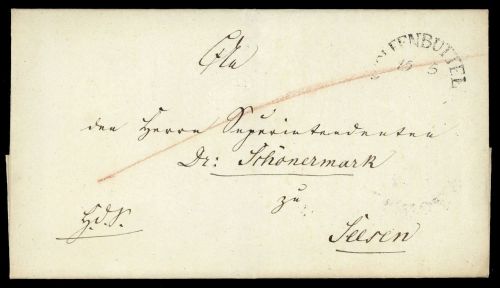 An
WOLFENBÜTTEL
15 5
den Herrn Superintendenten
Dr: Schönermark
zu
H. d. S.
Seesen